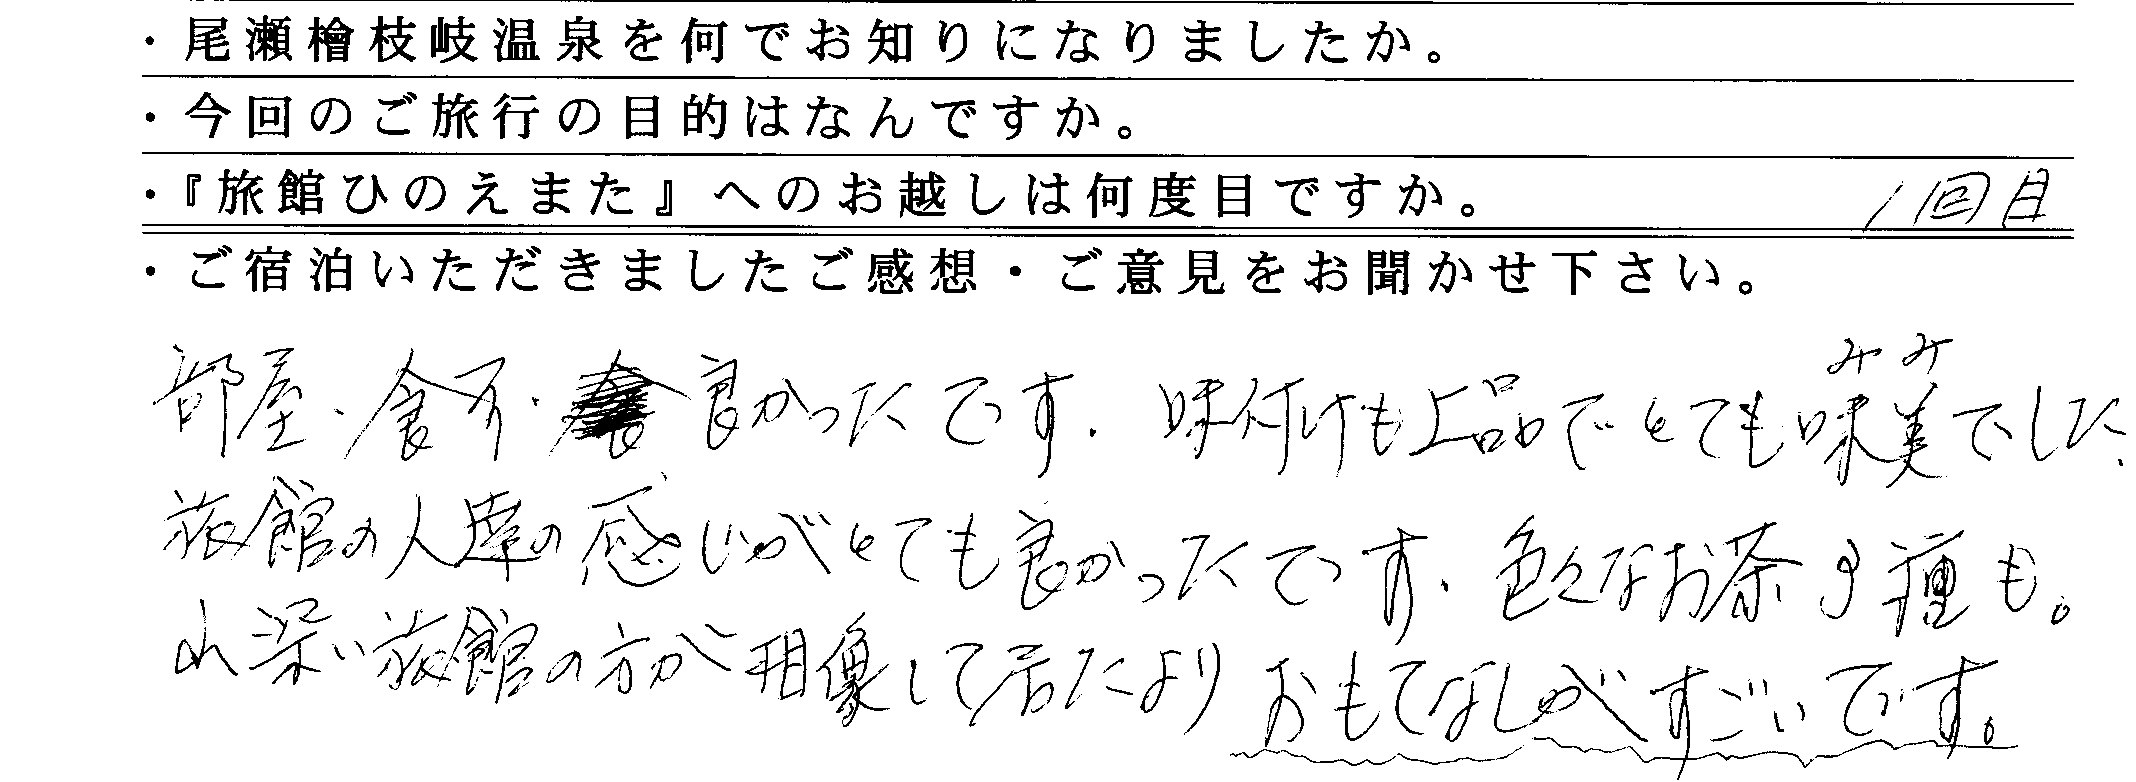 ・尾瀬檜枝岐温泉を何でお知りになりましたか。
・今回のご旅行の目的はなんですか。
・『旅館ひのえまた』へのお越しは何度目ですか。 1回目
・ご宿泊いただきましたご感想・ご意見をお聞かせ下さい。
みみ
部屋・食事・良かったです。味付けも上品でとても味美でした、
旅館の人達の感じがとても良かったです。色々なお茶の種も。
山深い旅館の方が想像して居たより おもてなしがすごいです。